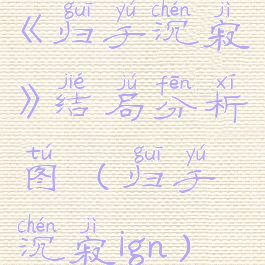 guī yú chén jì
《归于沉寂
jié jú fēn xī
》结局分析
tú guī yú
图（归于
chén jì
沉寂ign）